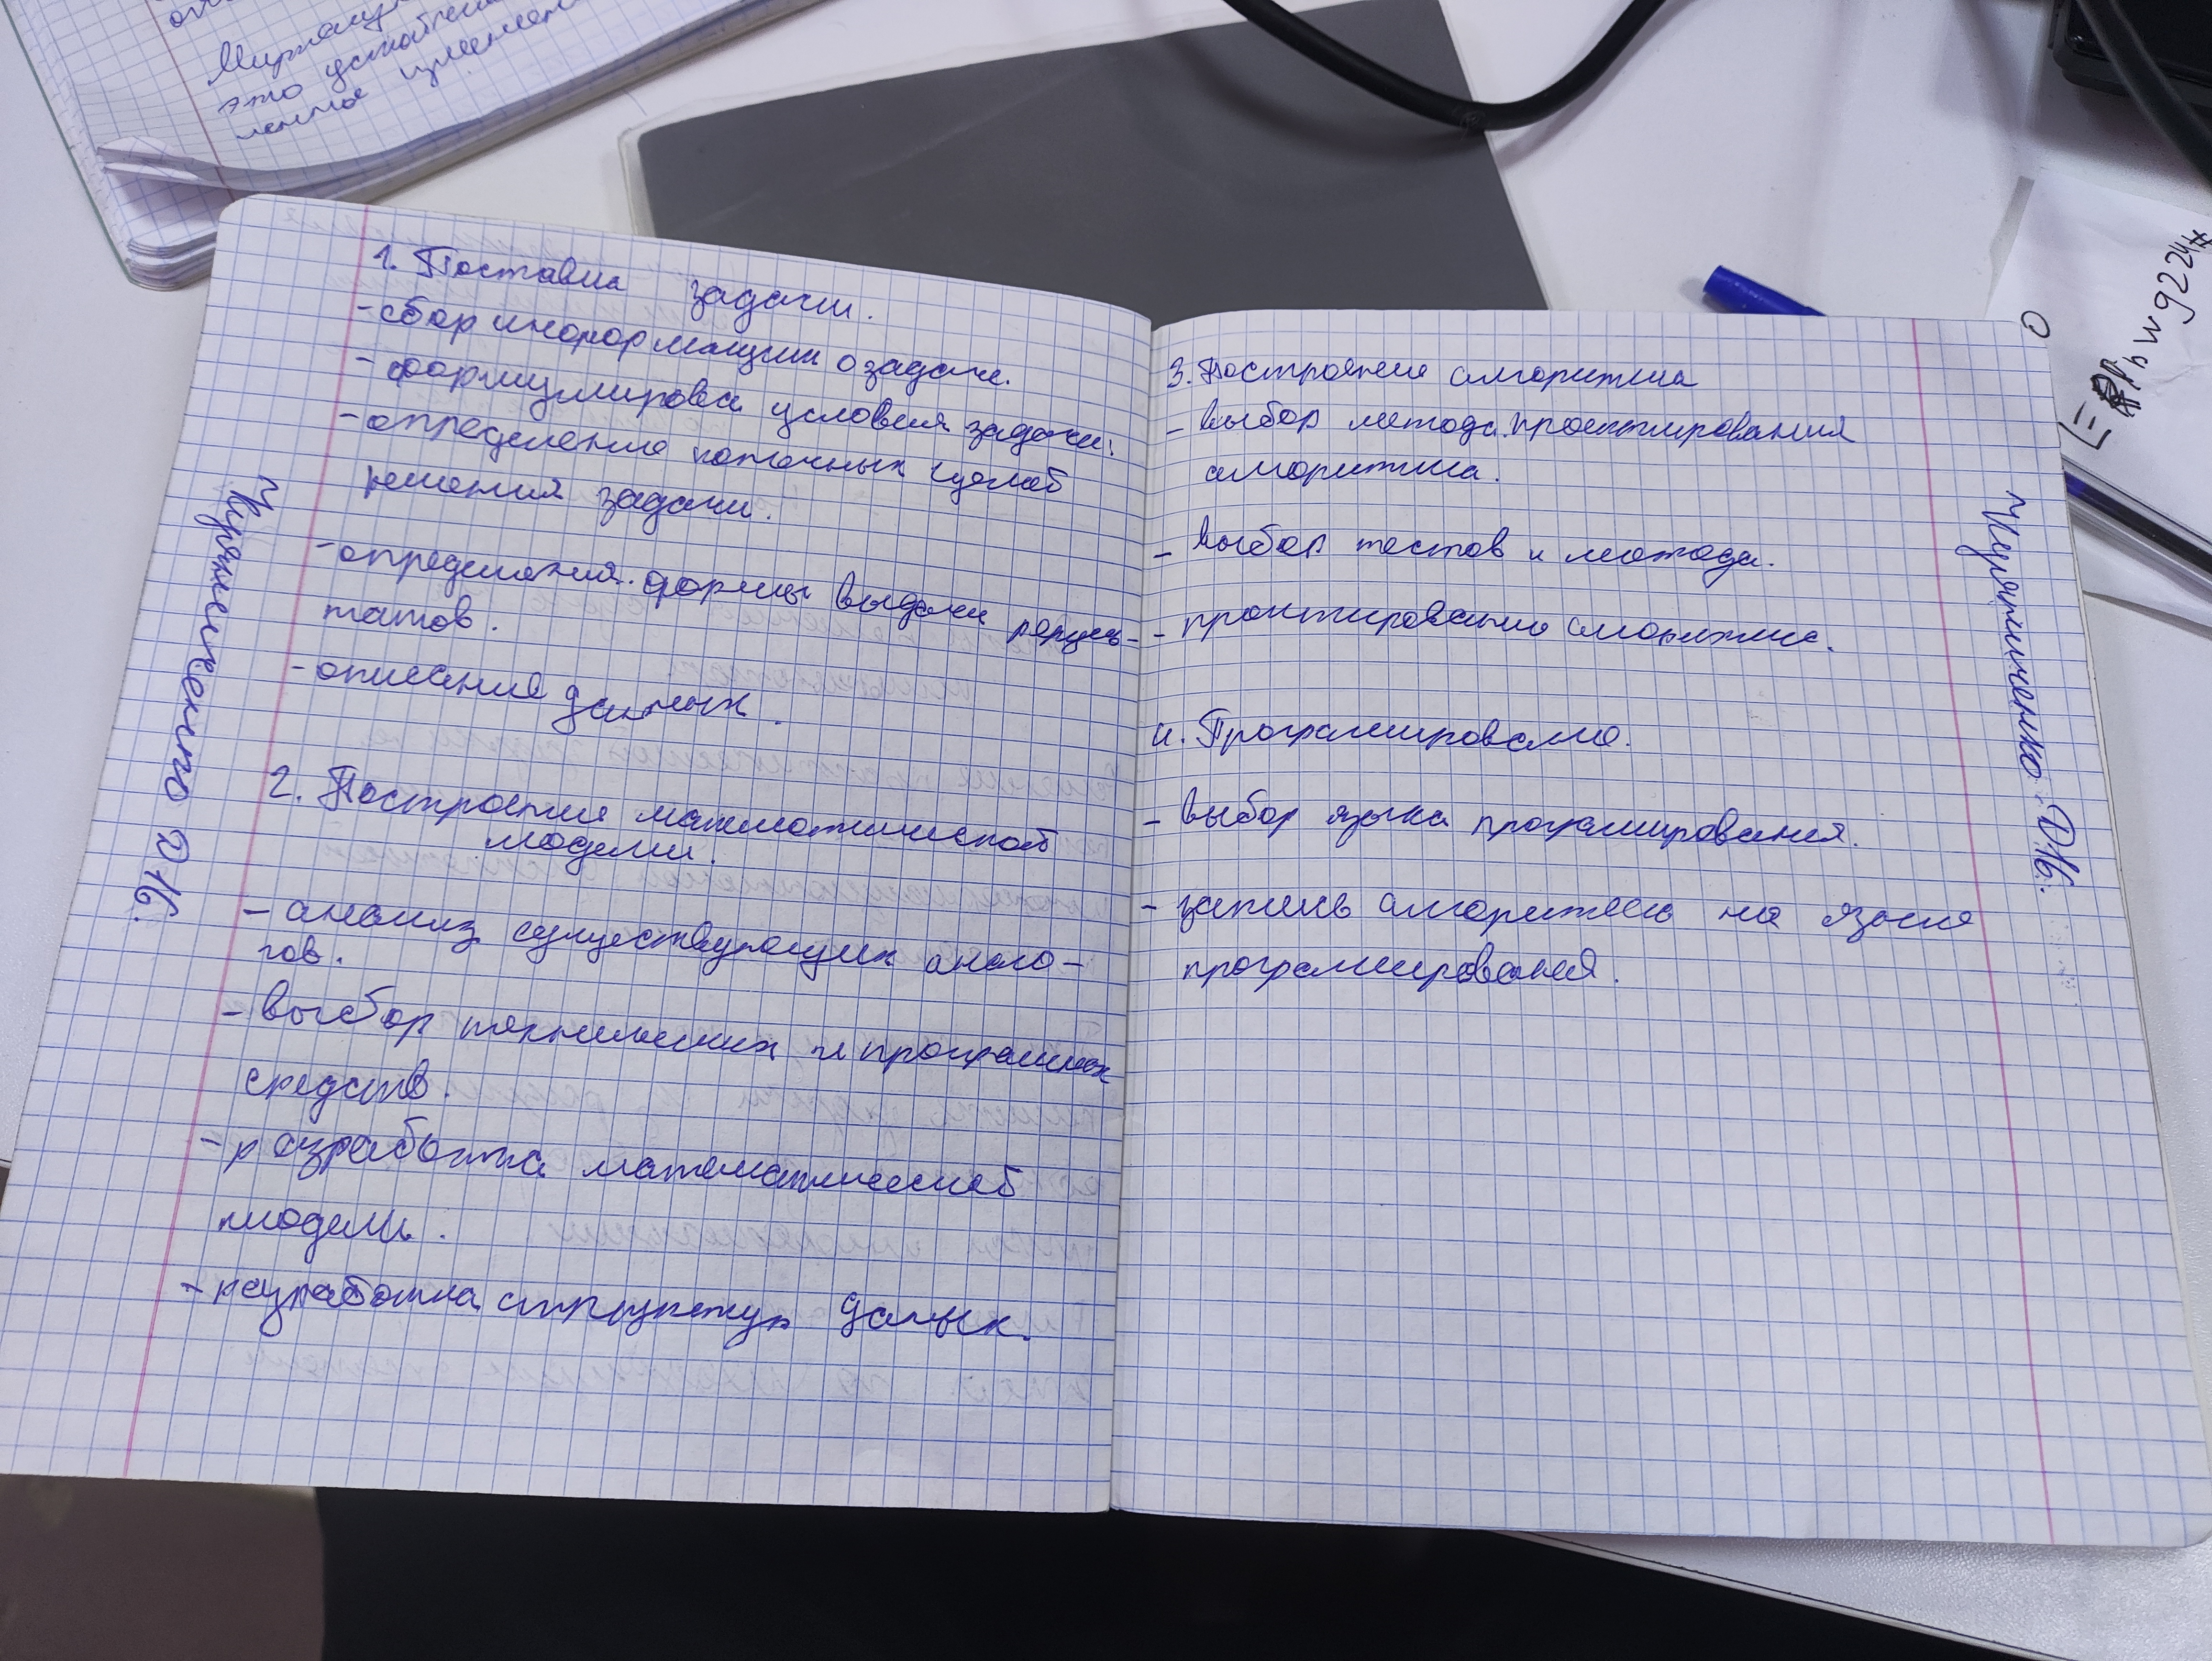 Миртац
это устойчив
1. Поставка задачи.
- сбор информации о задаче.
- формулирова условия задачи.
- определение конечных целей
решения задачи.
- определения формы выдачи резуль-
татов.
- описания данных.
2. Построения математической
модели.
- анализ существующих анало-
гов.
- выбор технических и програмных
средств.
- разработка математической
модели.
- разработка структур даных.
3. Построение алгоритма
- выбор метода проектирования
алгоритма.
- выбор тестов и метода.
- проктирование алгоритма.
4. Програмирование.
- выбор языка програмирования.
- запись алгоритма на языке
програмирования.
Д1б.
Д1б.